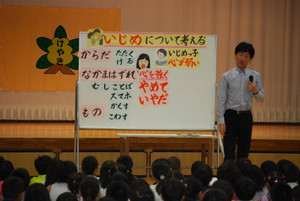 けやき
いじめについて考える
からだ
たたく
ける
いじめっ子
心が弱い
なかまはずれ
心を強く
むし
ことば
スマホ
やめて
いやだ
もの
かくす
こわす